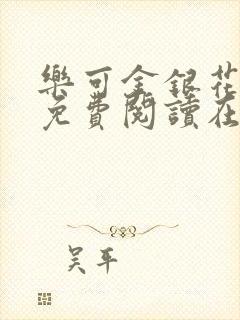 樂可金銀花
免費閱讀在
吴平